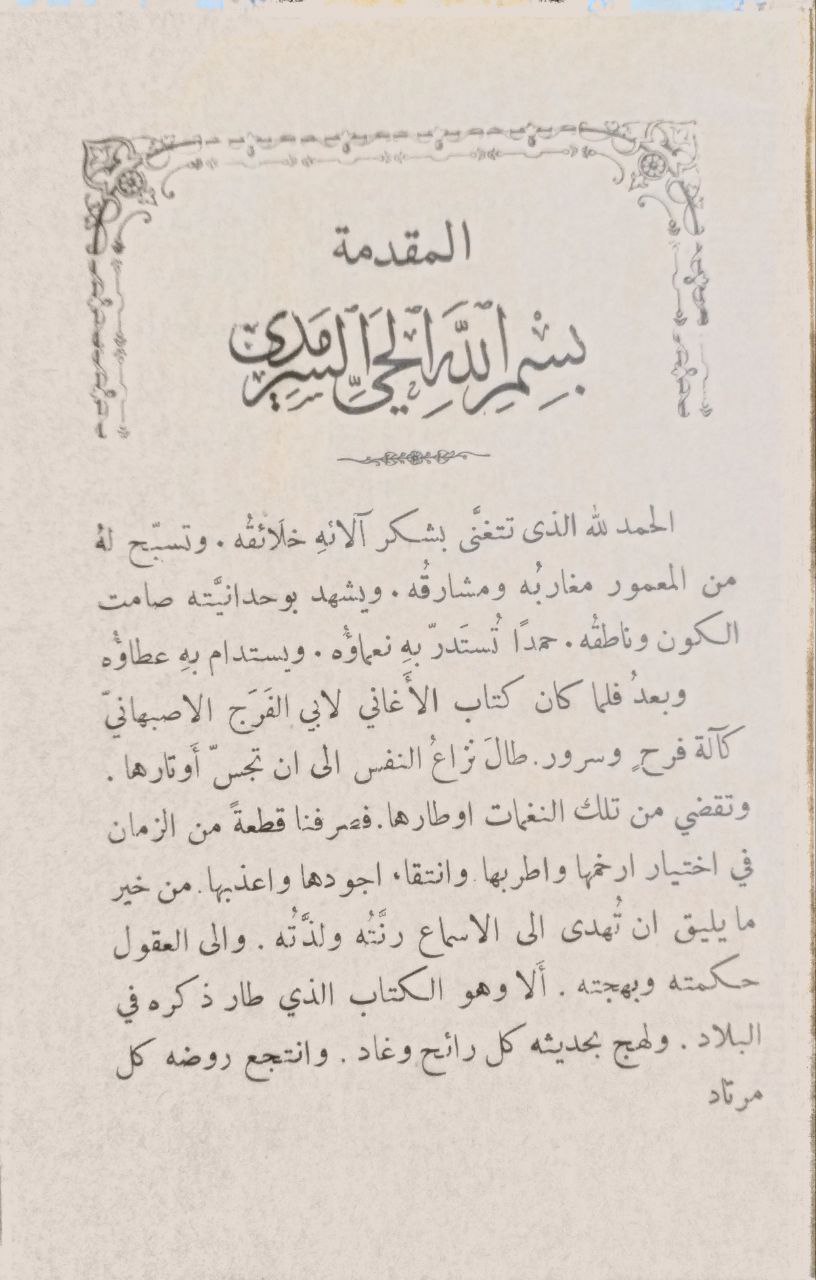 المقدمة
بِسْمِ اللَّهِ الْحَيِّ السَّرْمَدِي
الحمد لله الذى تتغنَّى بشكر آلائهِ خلَائقُه . وتسبّح لهُ
من المعمور مغاربُه ومشارقُه . ويشهد بوحدانيَّته صامت
الكون وناطقُه . حمدًا تُستَدرّ بهِ نعماؤُه . ويستدام بهِ عطاؤُه
وبعدُ فلما كان كتاب الأَغاني لابي الفَرَج الاصبهانيّ
كآلة فرحٍ وسرور . طالَ نزاعُ النفس الى ان تجسّ أَوتارها .
وتقضي من تلك النغمات اوطارها . فصرفنا قطعةً من الزمان
في اختيار ارخمها واطربها . وانتقاء اجودها واعذبها . من خير
ما يليق ان تُهدى الى الاسماع رنَّتُه ولذَّتُه . والى العقول
حكمته وبهجته . أَلا وهو الكتاب الذي طار ذكره في
البلاد . ولهج بحديثه كل رائح وغاد . وانتجع روضه كل
مرتاد